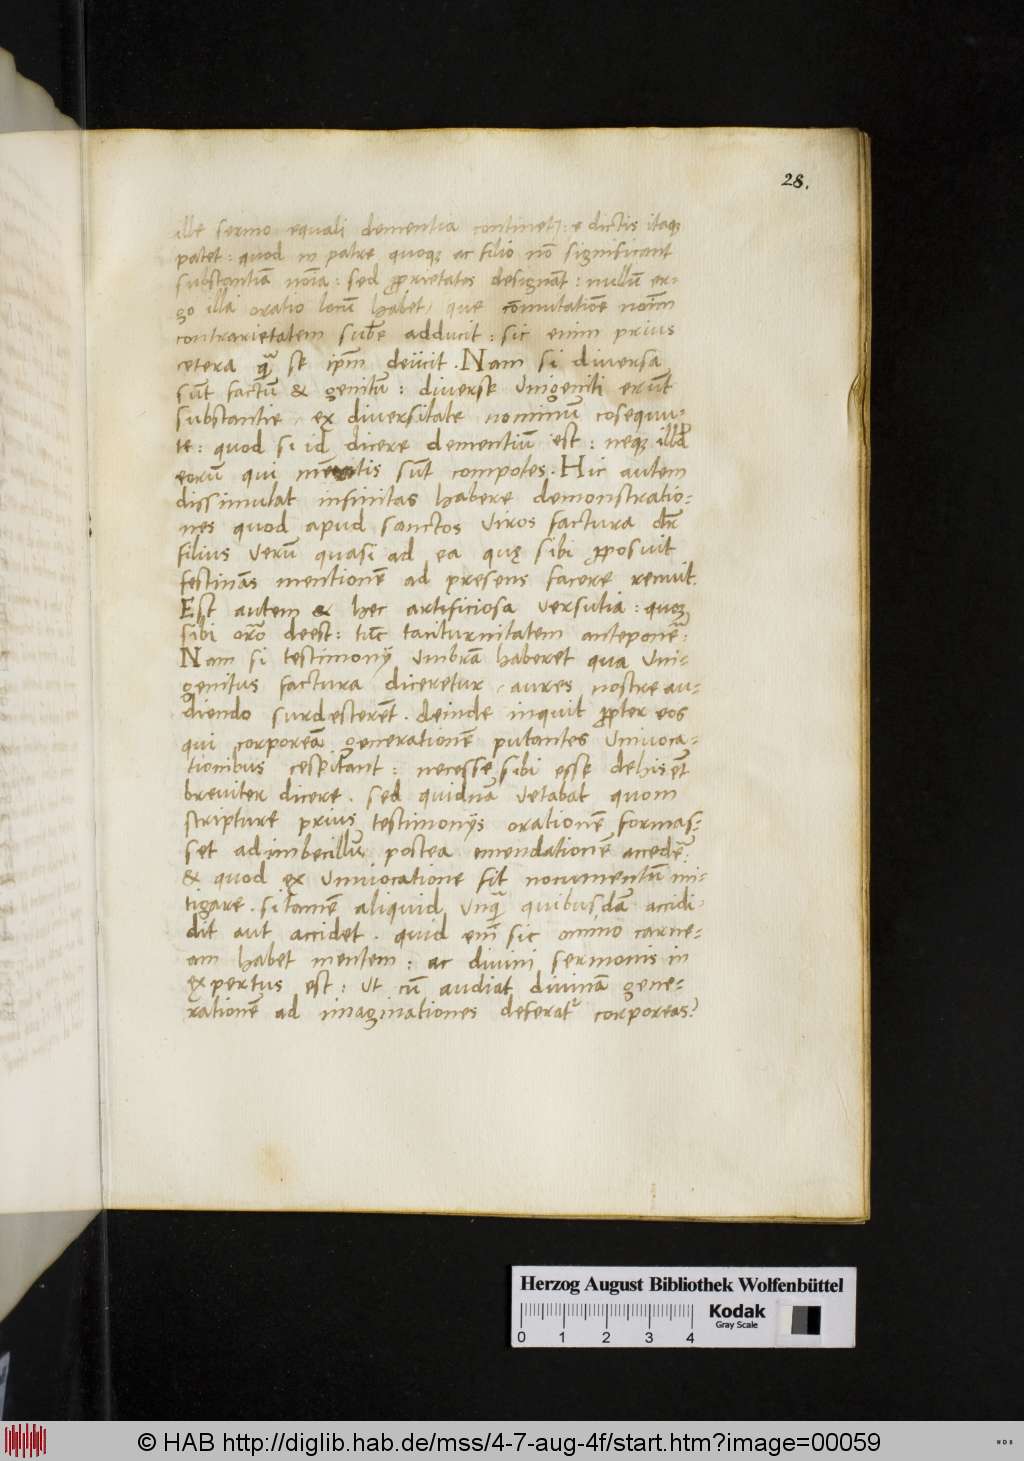 28.
ille sermo equali dementia continet᷒: e dictis itaqꝫ
patet: quod in patre quoqꝫ ac filio nō significant
substantiā noīa: sed ꝓprietates designāt: nullū er-
go illa oratio locū habet, que cōmutatiōe noīm
contrarietatem subē adducit: sic enim prius
cetera q̄ se ip̄m deiicit. Nam si diversa
sūt factū & genitū: diverse Vnigeniti erūt
substantie, ex diversitate nominū cosequu-
te: quod si id dicere dementiū est: neqꝫ illd
eorū qui mētis sūt compotes. Hic autem
dissimulat infinitas habere demonstratio-
nes quod apud sanctos viros factura dr̄
filius Verū quasi ad ea quę sibi ꝓposuit
festinās mentionē ad presens facere renuit.
Est autem & hec artificiosa versutia: quoqꝫ
sibi orō deest: tūc taciturnitatem anteponē:
Nam si testimonij Vmbrā haberet qua Vni-
genitus factura diceretur, aures nostre au-
diendo surdesterēt. deinde inquit ꝓpter eos
qui corporeā generationē putantes Univoca-
tionibus cespitant: necesse sibi esse dehis et
breviter dicere. sed quidnā Vetabat quom
scripture prius testimonijs orationē formas-
set ad imbecillū postea emendationē accedē:
& quod ex Vnivocatione fit nocumentū mi-
tigare. si tamē aliquid Vnq̄ quibusdā accidi-
dit aut accidet. quid enī sic omīno carne-
am habet mentem: ac divini sermonis in
expertus est: Ut cū audiat divinā gene-
rationē ad imaginationes deferat᷒ corporeas?
Herzog August Bibliothek Wolfenbüttel
Kodak
Gray Scale
0 1 2 3 4
© HAB http://diglib.hab.de/mss/4-7-aug-4f/start.htm?image=00059